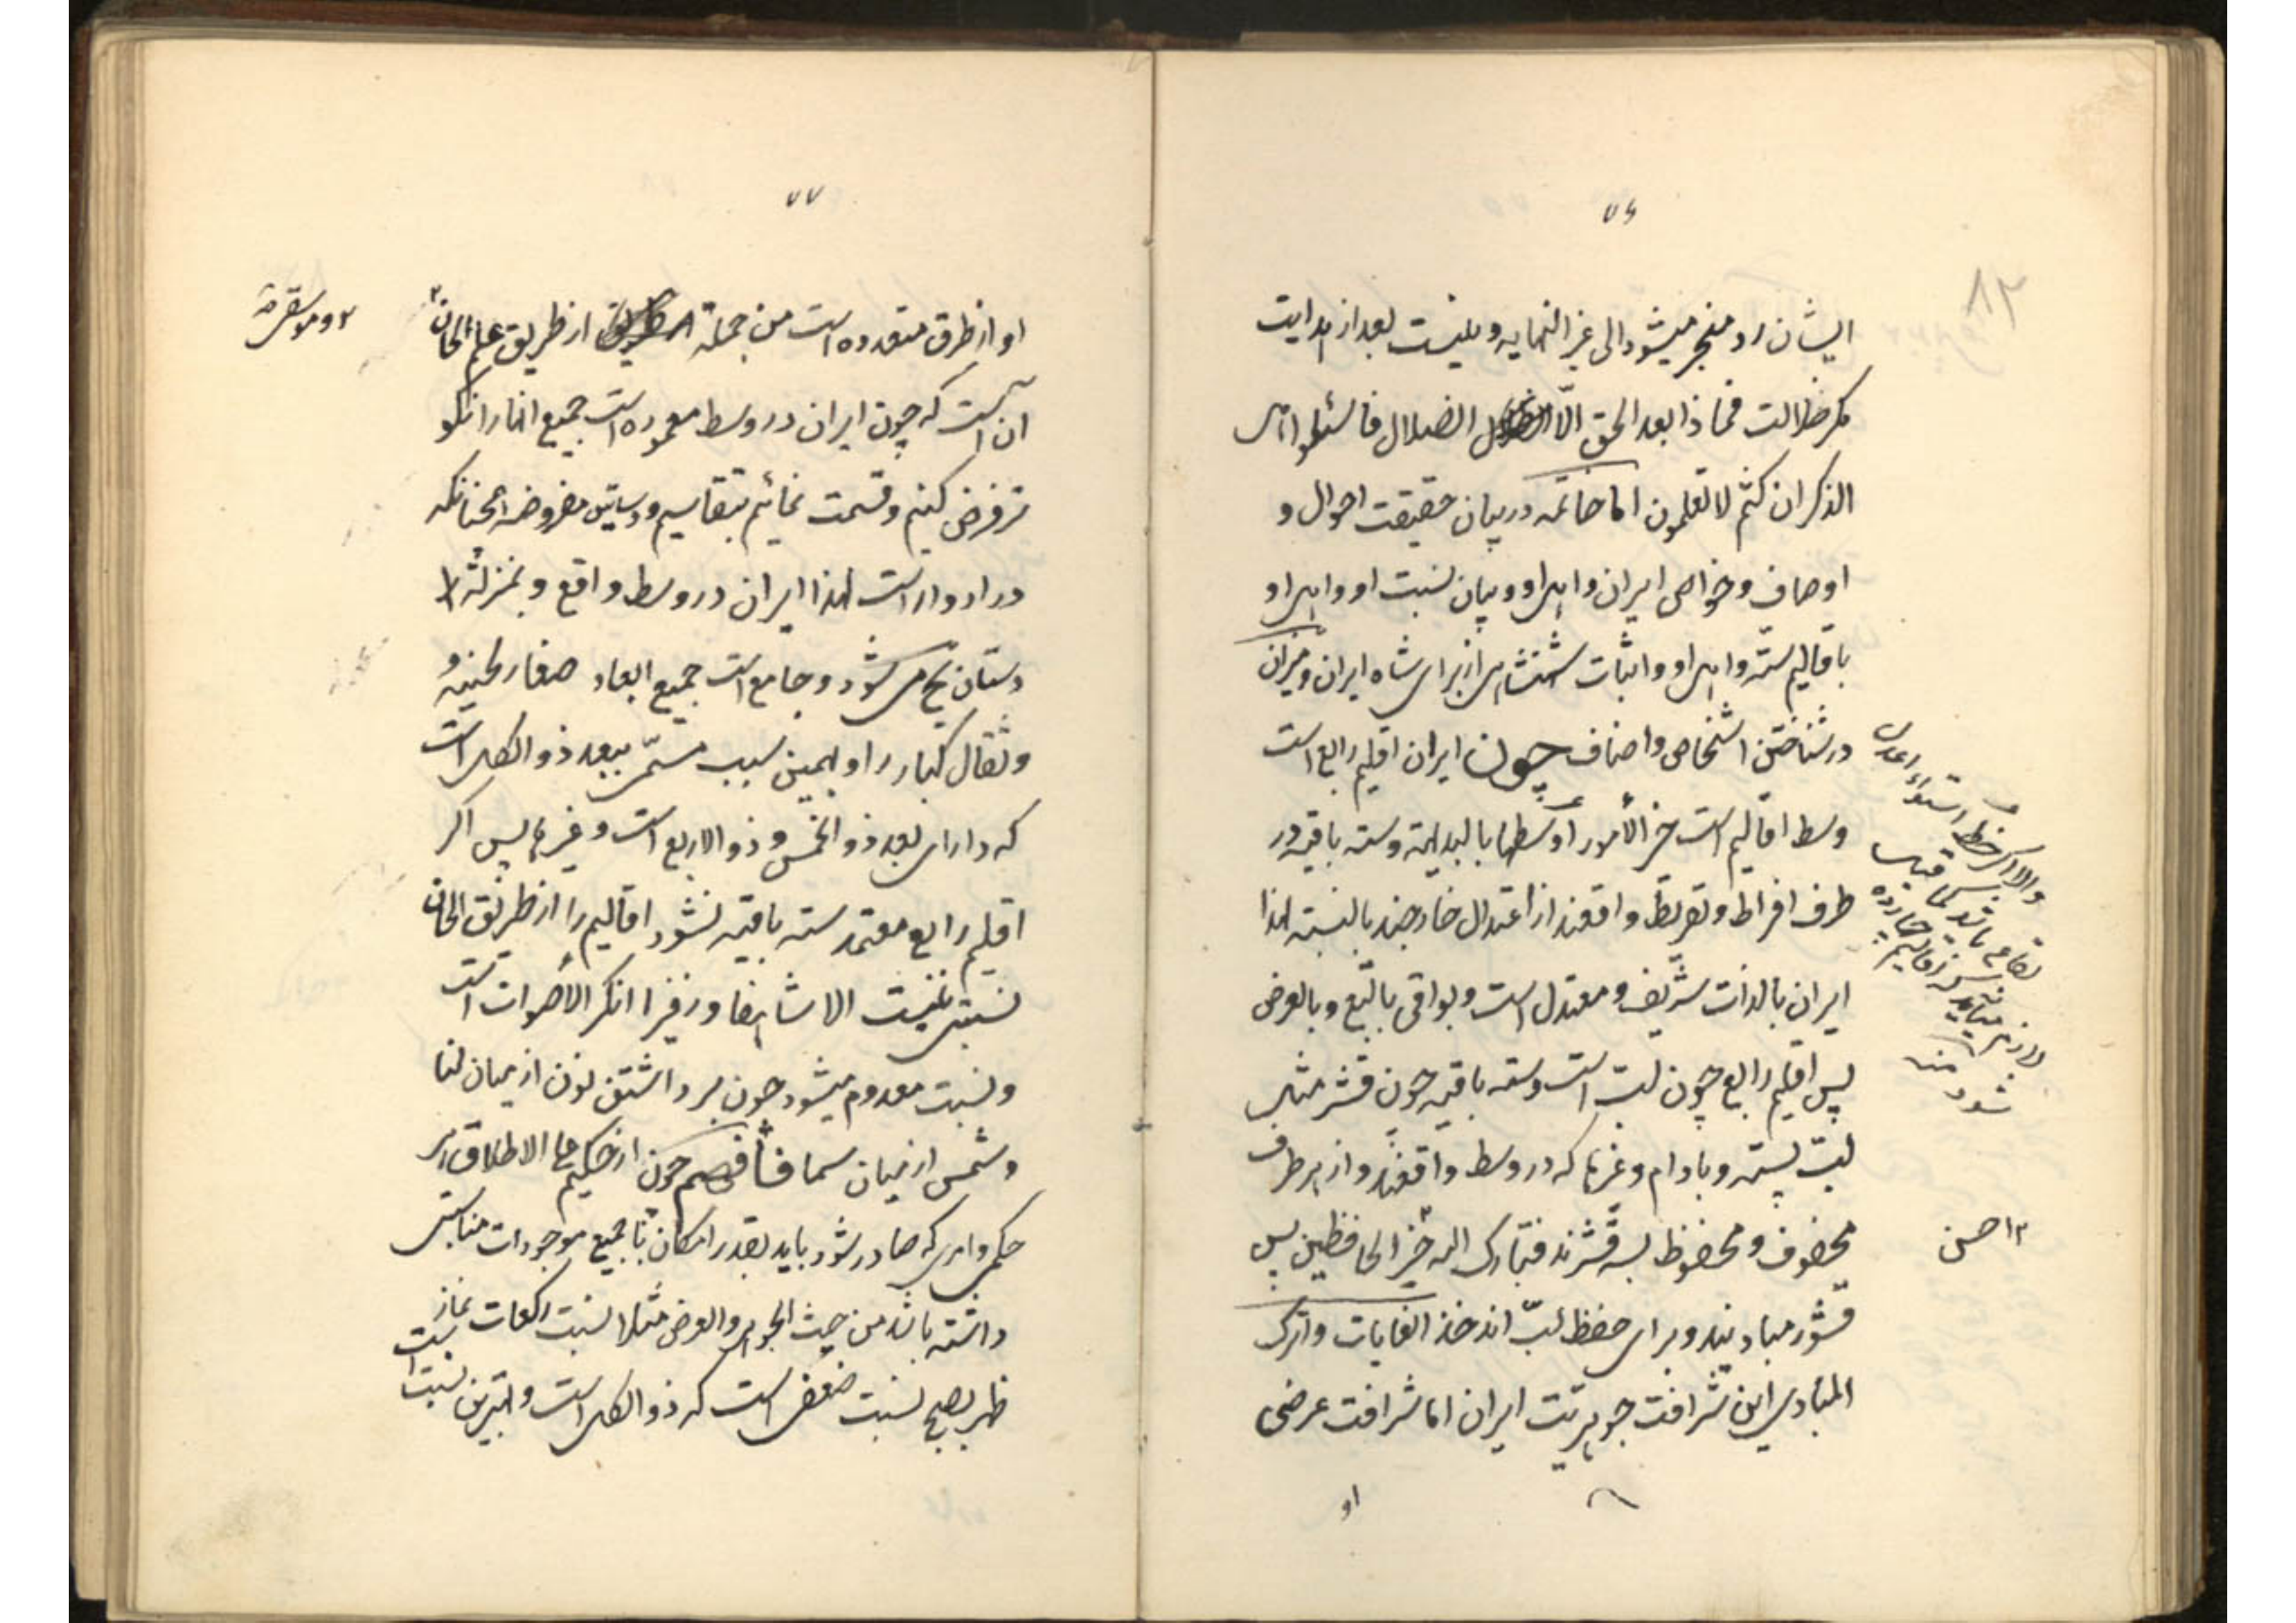 ۷۶
۸۲
ایشان رد و منجر میشود الی غیر النهایه و نیست بعد از هدایت
مکر ضلالت فماذا بعد الحق الّا الضلال فاسئلوا اهل
الذکر ان کنتم لا تعلمون اما خاتمه در بیان حقیقت احوال و
اوصاف و خواص ایران و اهل او و بیان نسبت او و اهل او
باقالیم ستّه و اهل او و اثبات شهنشاهی از برای شاه ایران و میزان
در شناختن اشخاص و اصناف چون ایران اقلیم رابع است
وسط اقالیم است خیر الأمور اوسطها بالبدایهة و سته باقیه در
طرف افراط و تفریط واقعند از اعتدال خارجند بالنسبه لهذا
ایران بالذات شریف و معتدل است و بواقی بالتبع و بالعرض
پس اقلیم رابع چون لبّ است و سته باقیه چون قشر مثل
لبّ پسته و بادام و غیرها که در وسط واقعند و از هر طرف
محفوف و محفوظ بسه قشرند فتبارک الله خیر الحافظین پس
قشور مبادیند و برای حفظ لبّ اند خذ الغایات و اترک
المبادی این شرافت جوهریّت ایران اما شرافت عرضی
او
والا اکر خط استواء اعدل
بقاع باشد کما قیل
لازم میآید که اقالیم چهارده
شود منه
۲ احسن
۷۷
او از طرق متعدده است من جمله از طریق علم الحان ۲
آن است که چون ایران در وسط معموره است جمیع انها را نکو
تر فرض کنیم و قسمت نمائیم بتقاسیم و دساتین مفروضه همچنانکه
در ادوار است لهذا ایران در وسط واقع و بمنزلهٔ
دستان پنج می شود و جامع است جمیع ابعاد صغار لحنیه و
و ثقال کبار را و بهمین سبب مسمّی ببعد ذو الکل است
که دارای بعد ذو الخمس و ذو الاربع است و غیرها پس اکر
اقلیم رابع معتمد سته باقیه نشود اقالیم را از طریق الحان
نسبتی نیست الا شهیقا و زفیرا انکر الأصوات است
و نسبت معدوم میشود چون برداشتن نون از میان لنا
و شمس از میان سما فأفهم چون از حکیم علی الاطلاق هر
حکمی و امری که صادر شود باید بقدر امکان با جمیع موجودات مناسبتی
داشته باشد من حیث الجوهر و العرض مثلا نسبت رکعات نماز
ظهر بصبح نسبت ضعف است که ذو الکل است و بهترین نسبت است
۲ و موسیقی